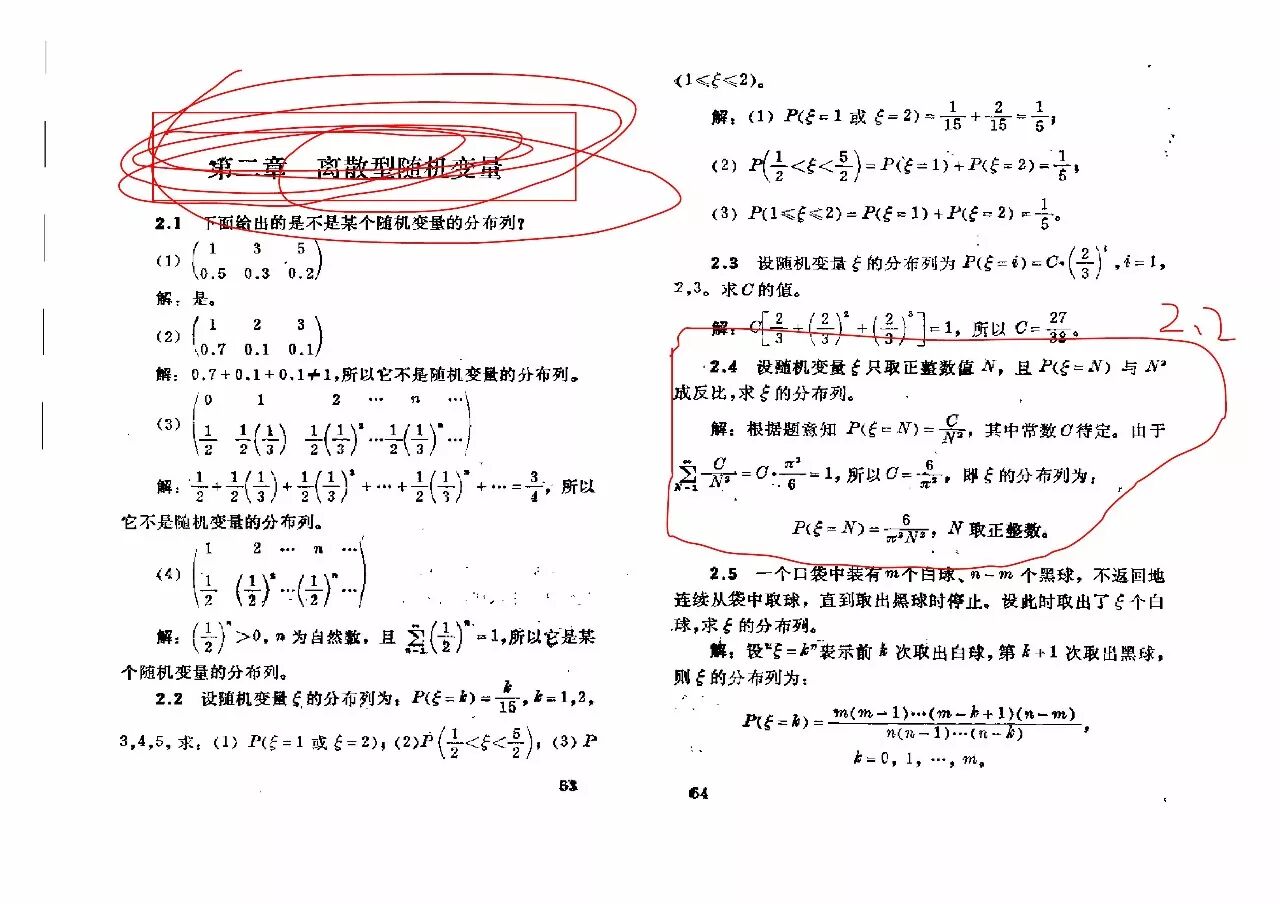 第二章 离散型随机变量
2.1 下面给出的是不是某个随机变量的分布列?
(1) (1 3 5
0.5 0.3 0.2)
解:是。
(2) (1 2 3
0.7 0.1 0.1)
解:0.7+0.1+0.1≠1,所以它不是随机变量的分布列。
(3) (0 1 2 … n …
1/2 1/2(1/3) 1/2(1/3)² … 1/2(1/3)ⁿ …)
解:1/2+1/2(1/3)+1/2(1/3)²+…+1/2(1/3)ⁿ+…=3/4,所以
它不是随机变量的分布列。
(4) (1 2 … n …
1/2 (1/2)² … (1/2)ⁿ …)
解:(1/2)ⁿ>0,n为自然数,且 ∑_{n=1}^{∞}(1/2)ⁿ=1,所以它是某
个随机变量的分布列。
2.2 设随机变量ξ的分布列为:P(ξ=k)=k/15,k=1,2,
3,4,5,求:(1) P(ξ=1 或 ξ=2);(2) P(1/2<ξ<5/2);(3) P
53
(1≤ξ≤2)。
解:(1) P(ξ=1 或 ξ=2)=1/15+2/15=1/5;
(2) P(1/2<ξ<5/2)=P(ξ=1)+P(ξ=2)=1/5;
(3) P(1≤ξ≤2)=P(ξ=1)+P(ξ=2)=1/5。
2.3 设随机变量ξ的分布列为 P(ξ=i)=C·(2/3)ⁱ,i=1,
2,3。求C的值。
解:C[2/3+(2/3)²+(2/3)³]=1,所以 C=27/38。
2.2
2.4 设随机变量ξ只取正整数值N,且 P(ξ=N) 与 N²
成反比,求ξ的分布列。
解:根据题意知 P(ξ=N)=C/N²,其中常数C待定。由于
∑_{N=1}^{∞} C/N²=C·π²/6=1,所以C=6/π²,即ξ的分布列为:
P(ξ=N)=6/π²N²,N取正整数。
2.5 一个口袋中装有m个白球、n-m个黑球,不返回地
连续从袋中取球,直到取出黑球时停止。设此时取出了ξ个白
球,求ξ的分布列。
解:设“ξ=k”表示前k次取出白球,第k+1次取出黑球,
则ξ的分布列为:
P(ξ=k)=m(m-1)…(m-k+1)(n-m)/n(n-1)…(n-k),
k=0,1,…,m。
64